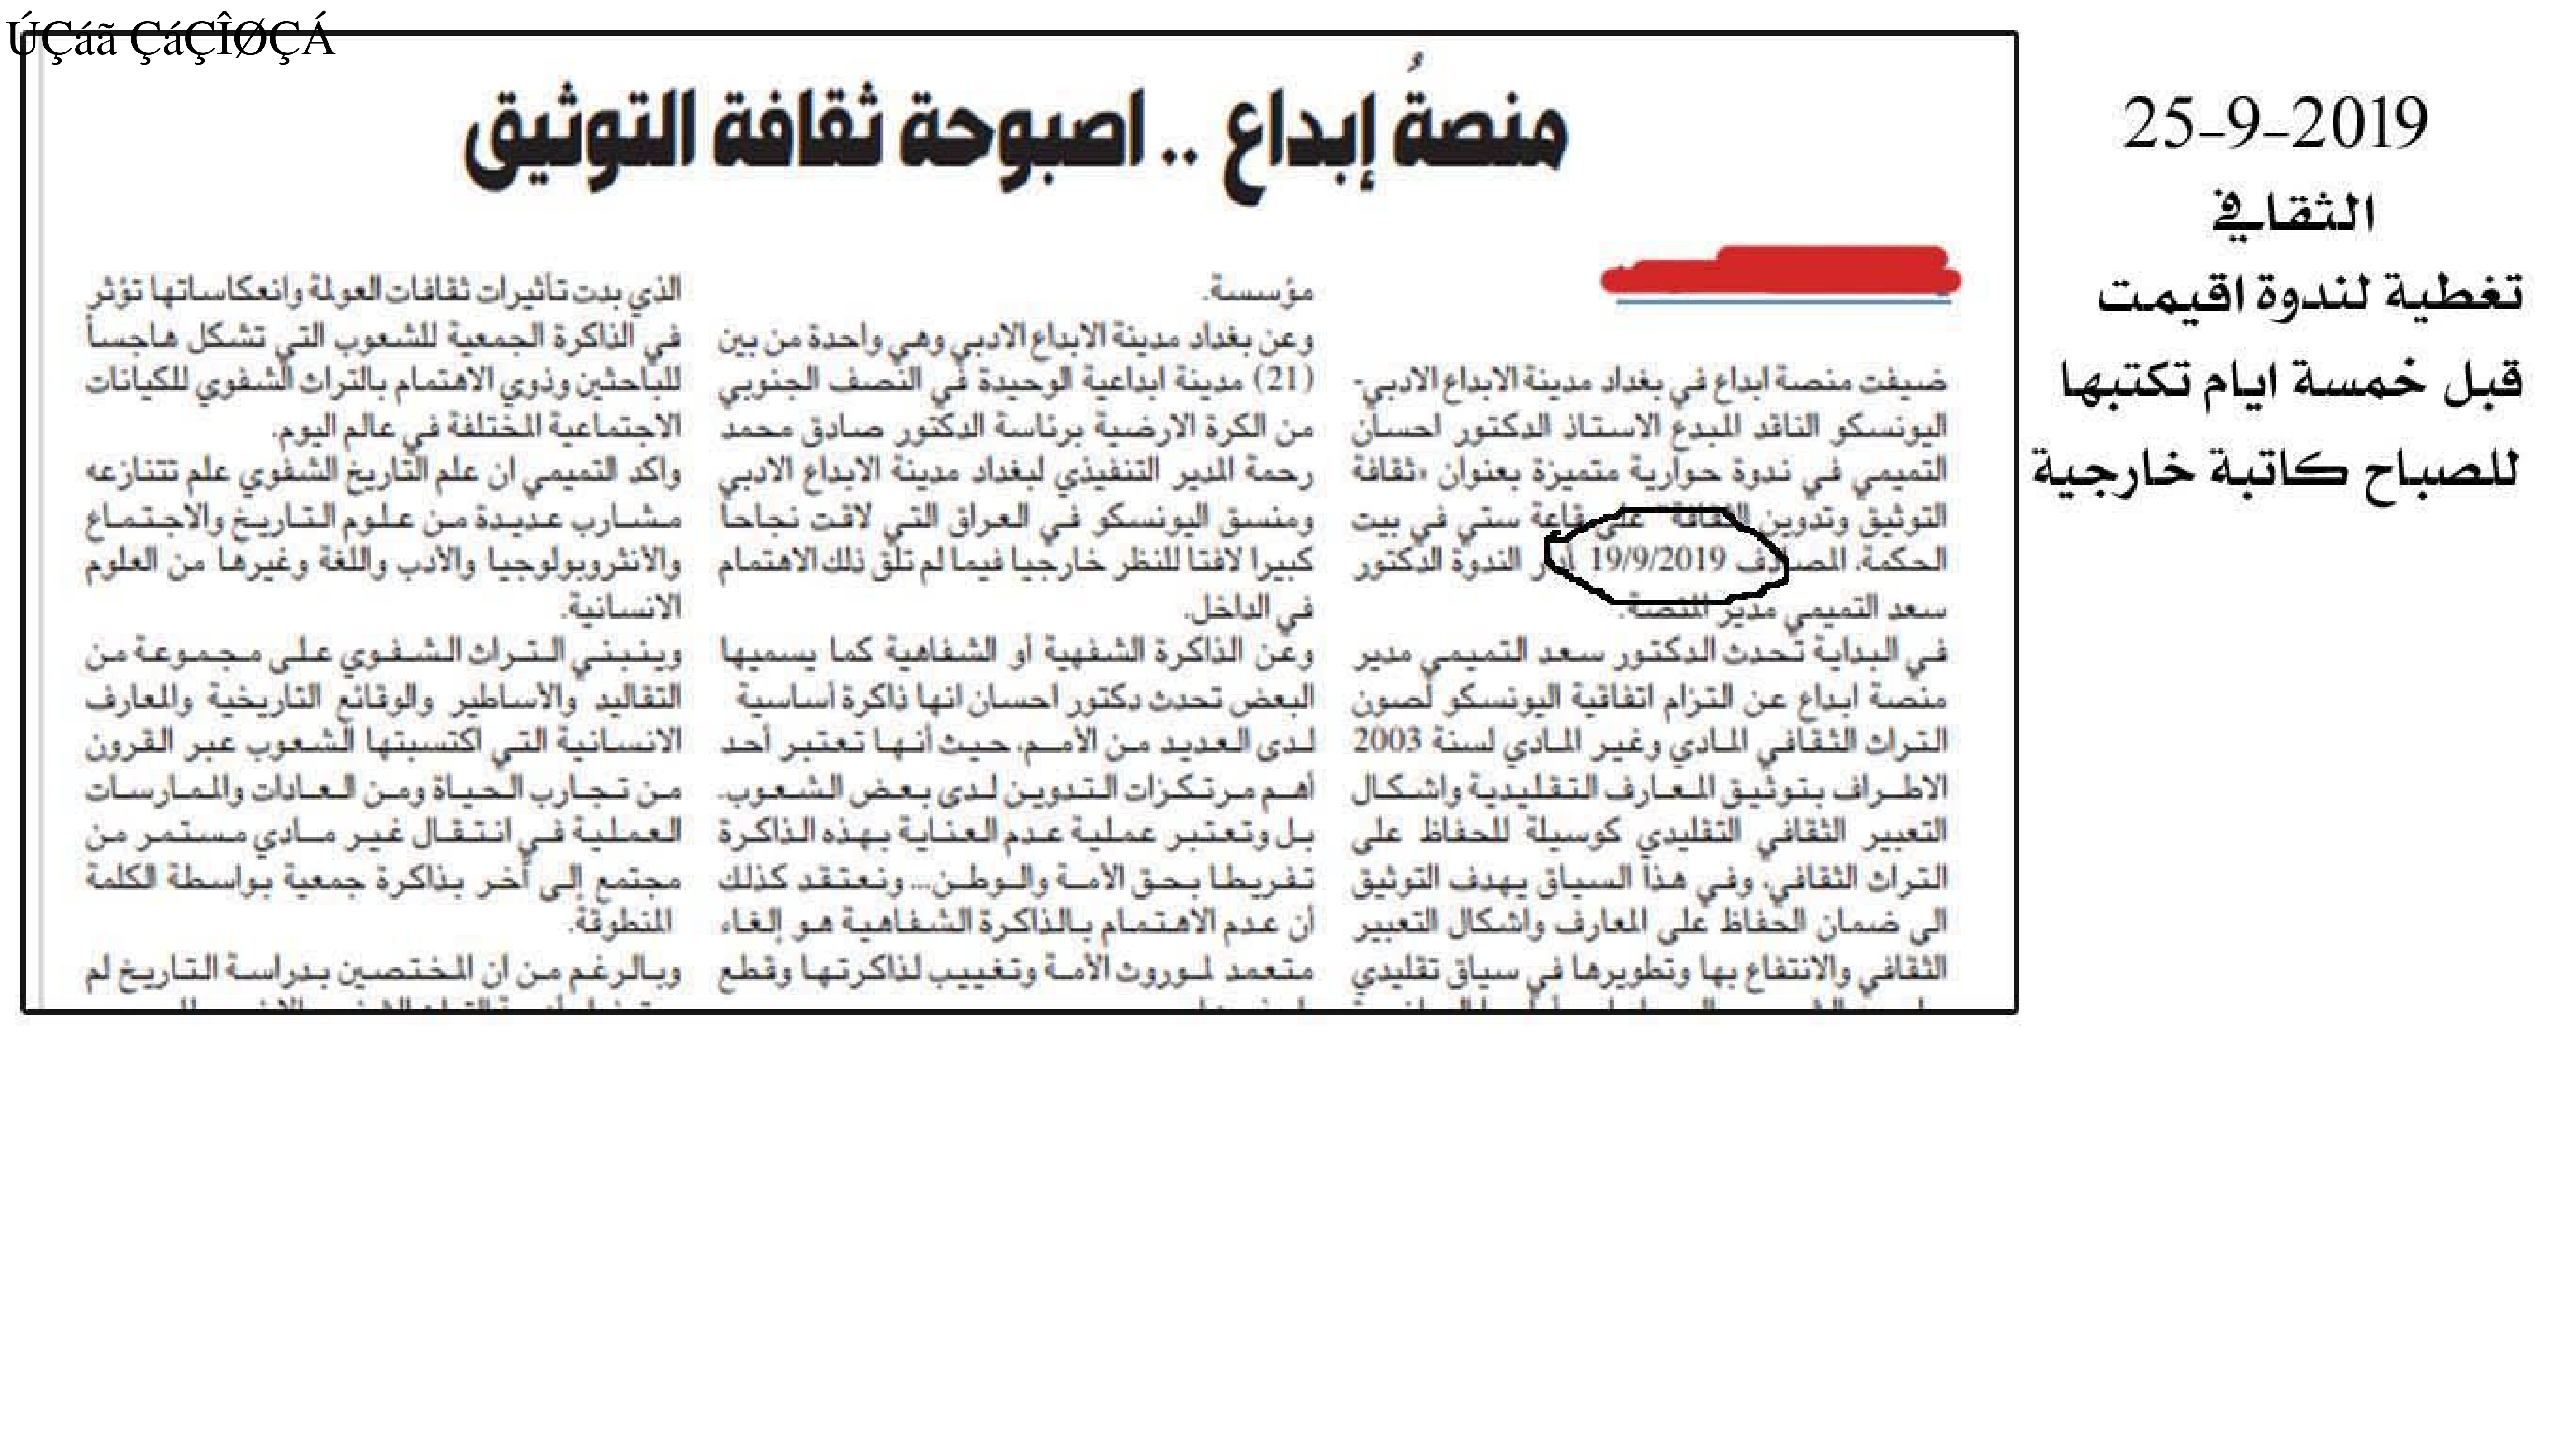 ÚÇáã ÇáÇÎØÇÁ
منصةُ إبداع .. اصبوحة ثقافة التوثيق
ضيفت منصة ابداع في بغداد مدينة الابداع الادبي-
اليونسكو الناقد المبدع الاستاذ الدكتور احسان
التميمي في ندوة حوارية متميزة بعنوان «ثقافة
التوثيق وتدوين الثقافة" على قاعة ستي في بيت
الحكمة، المصادف 19/9/2019 أدار الندوة الدكتور
سعد التميمي مدير المنصة.
في البداية تحدث الدكتور سعد التميمي مدير
منصة ابداع عن التزام اتفاقية اليونسكو لصون
التراث الثقافي المادي وغير المادي لسنة 2003
الاطراف بتوثيق المعارف التقليدية واشكال
التعبير الثقافي التقليدي كوسيلة للحفاظ على
التراث الثقافي، وفي هذا السياق يهدف التوثيق
الى ضمان الحفاظ على المعارف واشكال التعبير
الثقافي والانتفاع بها وتطويرها في سياق تقليدي
مؤسسة.
وعن بغداد مدينة الابداع الادبي وهي واحدة من بين
(21) مدينة ابداعية الوحيدة في النصف الجنوبي
من الكرة الارضية برئاسة الدكتور صادق محمد
رحمة المدير التنفيذي لبغداد مدينة الابداع الادبي
ومنسق اليونسكو في العراق التي لاقت نجاحاً
كبيرا لافتا للنظر خارجيا فيما لم تلق ذلك الاهتمام
في الداخل.
وعن الذاكرة الشفهية أو الشفاهية كما يسميها
البعض تحدث دكتور احسان انها ذاكرة أساسية
لدى العديد من الأمم، حيث أنها تعتبر أحد
أهم مرتكزات التدوين لدى بعض الشعوب.
بل وتعتبر عملية عدم العناية بهذه الذاكرة
تفريطا بحق الأمة والوطن... ونعتقد كذلك
أن عدم الاهتمام بالذاكرة الشفاهية هو إلغاء
متعمد لموروث الأمة وتغييب لذاكرتها وقطع
الذي بدت تأثيرات ثقافات العولمة وانعكاساتها تؤثر
في الذاكرة الجمعية للشعوب التي تشكل هاجساً
للباحثين وذوي الاهتمام بالتراث الشفوي للكيانات
الاجتماعية المختلفة في عالم اليوم.
واكد التميمي ان علم التاريخ الشفوي علم تتنازعه
مشارب عديدة من علوم التاريخ والاجتماع
والأنثروبولوجيا والأدب واللغة وغيرها من العلوم
الانسانية.
وينبني التراث الشفوي على مجموعة من
التقاليد والأساطير والوقائع التاريخية والمعارف
الانسانية التي اكتسبتها الشعوب عبر القرون
من تجارب الحياة ومن العادات والممارسات
العملية في انتقال غير مادي مستمر من
مجتمع إلى أخر بذاكرة جمعية بواسطة الكلمة
المنطوقة.
وبالرغم من ان المختصين بدراسة التاريخ لم
25-9-2019
الثقافي
تغطية لندوة اقيمت
قبل خمسة ايام تكتبها
للصباح كاتبة خارجية